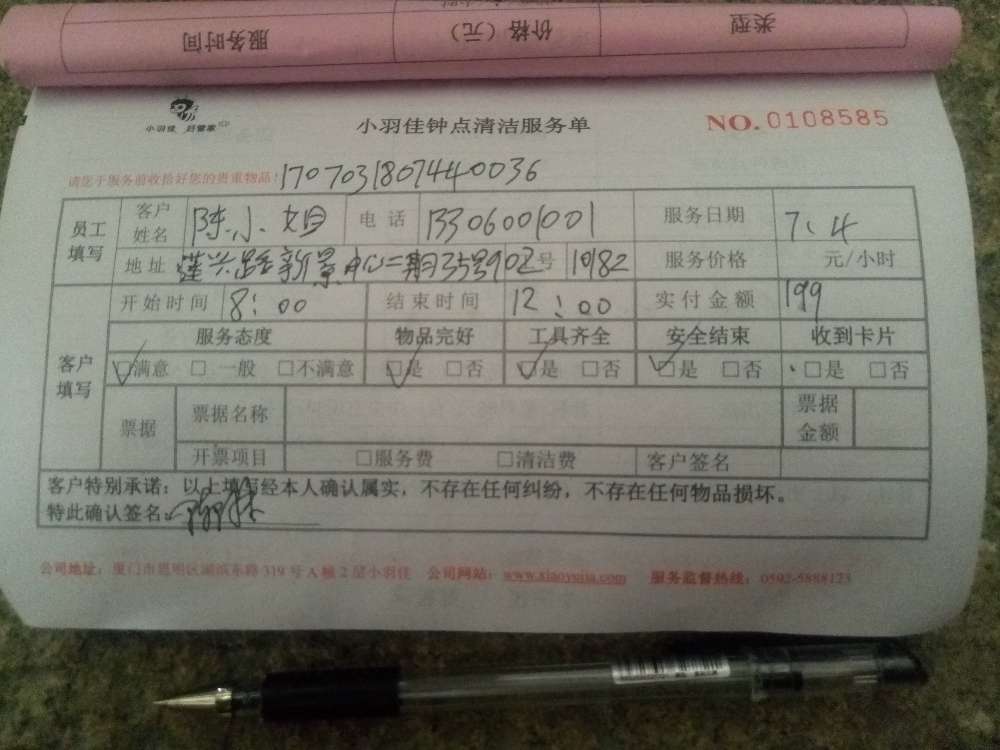 服务时间 价格（元） 类型
小羽佳 好管家
小羽佳钟点清洁服务单
NO.0108585
请您于服务前收拾好您的贵重物品！1707031807440036
员工填写 客户姓名 陈小姐 电话 服务日期 7.4
地址 号 10182 服务价格 元/小时
开始时间 8:00 结束时间 12:00 实付金额 199
客户填写 服务态度 物品完好 工具齐全 安全结束 收到卡片
满意 □一般 □不满意 是 □否 是 □否 是 □否 □是 □否
票据 票据名称 票据金额
开票项目 □服务费 □清洁费 客户签名
客户特别承诺：以上填写经本人确认属实，不存在任何纠纷，不存在任何物品损坏。
特此确认签名：
公司地址：厦门市思明区湖滨东路319号A幢2层小羽佳 公司网站：www.xiaoyujia.com 服务监督热线：0592-5888123